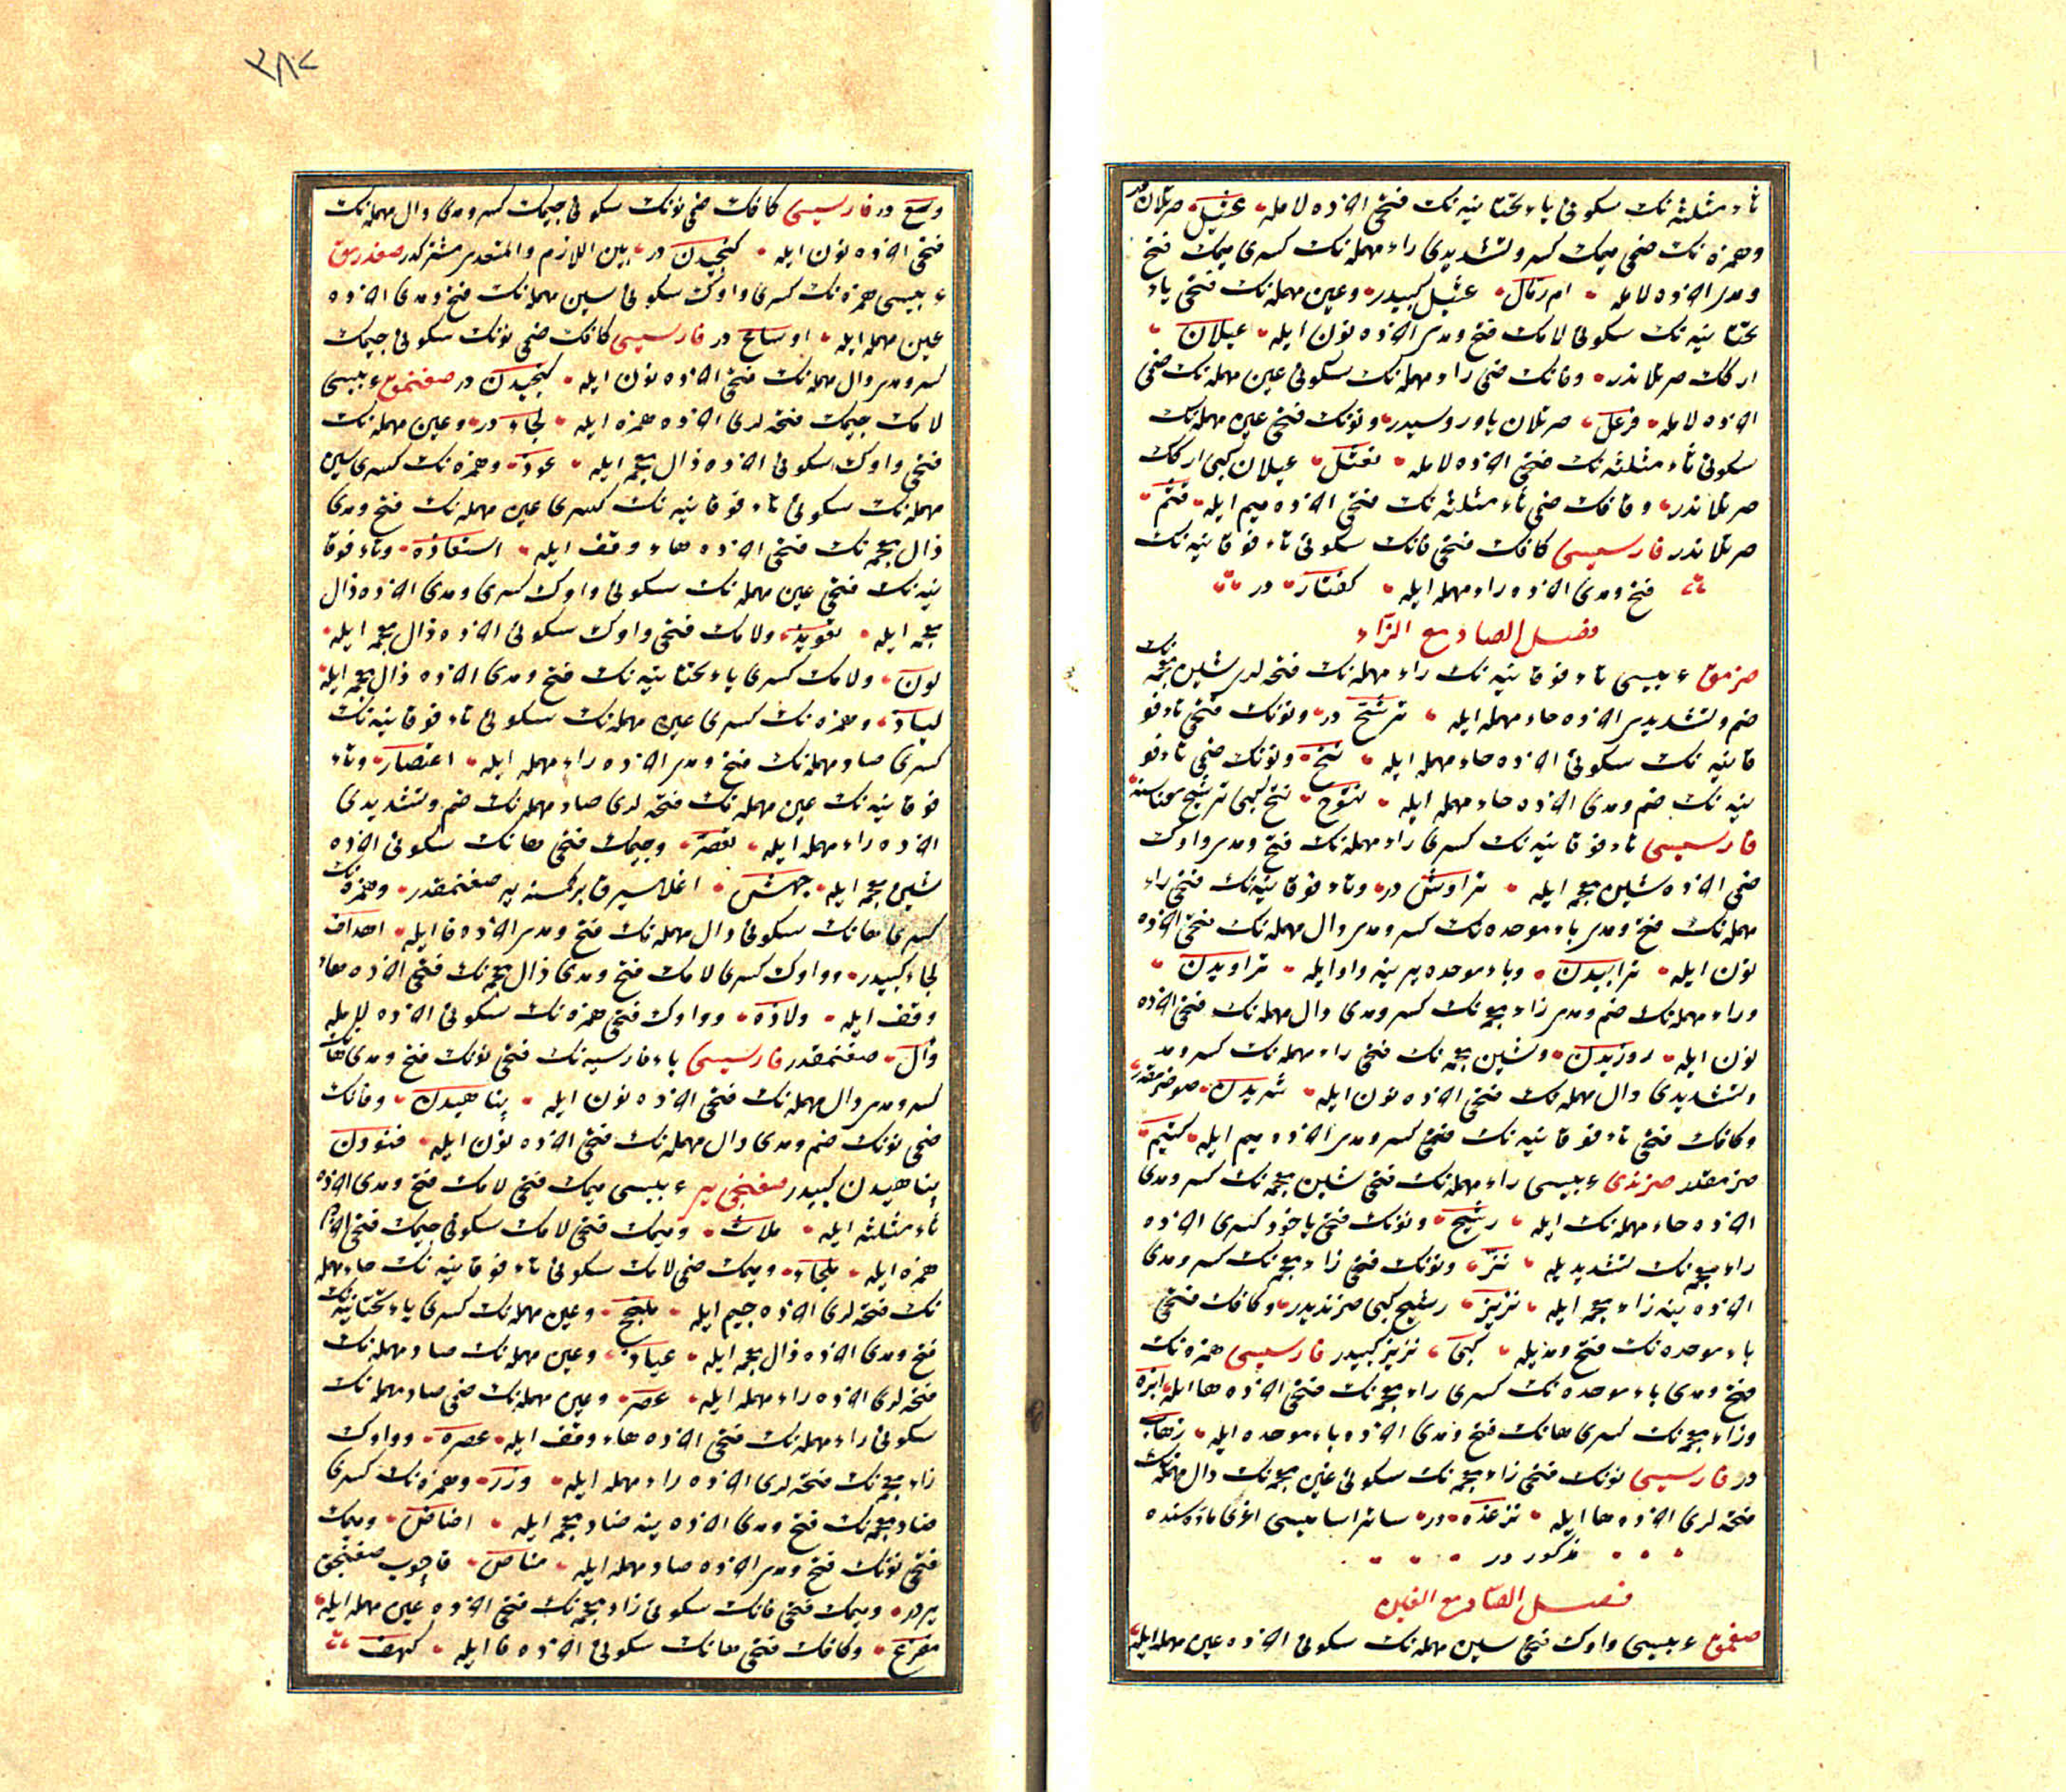 ثاء مثلثه نك سكونى ياء تحتانيه نك فتحى اخرده لامله عثيل صرتلاندر
وهمزه نك ضمى ميمك كسر وتشديدى راء مهمله نك كسرى ميمك فتح
ومدى اخرده لامله ام رمال عثيل كبيدر وعين مهمله نك فتحى ياء
تحتانيه نك سكونى لامك فتح ومدى اخرده نون ايله عيلان
اركك صرتلاندر وفانك ضمى راء مهمله نك سكونى عين مهمله نك ضمى
اخرده لامله فرعل صرتلان ياوروسيدر ونونك فتحى عين مهمله نك
سكونى ثاء مثلثه نك فتحى اخرده لامله نعثل عيلان كبى اركك
صرتلاندر وقافك ضمى ثاء مثلثه نك فتحى اخرده ميم ايله قثم
صرتلاندر فارسيسى كافك فتحى فانك سكونى تاء فوقانيه نك
فتح ومدى اخرده راء مهمله ايله كفتار در
فصل الصاد مع الزاء
صزمق عربيسى تاء فوقانيه نك راء مهمله نك فتحه لرى شين معجمه نك
ضم وتشديدى اخرده حاء مهمله ايله ترشح در ونونك فتحى تاء فو
قانيه نك سكونى اخرده حاء مهمله ايله نتح ونونك ضمى تاء فو
نيه نك ضم ومدى اخرده حاء مهمله ايله نتوح نتح كبى ترشح معناسنه
فارسيسى تاء فوقانيه نك كسرى راء مهمله نك فتح ومدى واوك
ضمى اخرده شين معجمه ايله تراوش در وتاء فوقانيه نك فتحى راء
مهمله نك فتح ومدى باء موحده نك كسر ومدى دال مهمله نك فتحى اخرده
نون ايله ترابيدن وباء موحده يرينه واو ايله تراويدن
وراء مهمله نك ضم ومدى زاء معجمه نك كسر ومدى دال مهمله نك فتحى اخرده
نون ايله روزيدن وشين معجمه نك فتحى راء مهمله نك كسر ومد
وتشديدى دال مهمله نك فتحى اخرده نون ايله شريدن صو صزمقدر
وكافك فتحى تاء فوقانيه نك كسر ومدى اخرده ميم ايله كتيم
صزمقدر صزندى عربيسى راء مهمله نك فتحى شين معجمه نك كسر ومدى
اخرده حاء مهمله نك ايله رشيح ونونك فتحى ياخود كسرى اخرده
زاء معجمه نك تشديديله نز ونونك فتحى زاء معجمه نك كسر ومدى
اخرده ينه زاء معجمه ايله نزيز رشيح كبى صزنديدر وكافك فتحى
باء موحده نك فتح ومديله كبى نزيز كبيدر فارسيسى همزه نك
فتح ومدى باء موحده نك كسرى زاء معجمه نك فتحى اخرده ها ايله ابزه
وزاء معجمه نك كسرى هانك فتح ومدى اخرده باء موحده ايله زهاب
در فارسيسى نونك فتحى زاء معجمه نك سكونى غين معجمه نك دال مهمله نك
فتحه لرى اخرده ها ايله نزغده در سائر اساميسى اغرى ماده سنده
مذكور در
فصل الصاد مع الغين
صغمق عربيسى واوك فتحى سين مهمله نك سكونى اخرده عين مهمله ايله
٣٨٢
وسع در فارسيسى كافك ضمى نونك سكونى جيمك كسر ومدى دال مهمله نك
فتحى اخرده نون ايله كنجيدن در بين اللازم والمتعدى مشتركدر صغدرمق
عربيسى همزه نك كسرى واوك سكونى سين مهمله نك فتح ومدى اخرده
عين مهمله ايله اوساع در فارسيسى كافك ضمى نونك سكونى جيمك
كسر ومدى دال مهمله نك فتحى اخرده نون ايله كنجيدن در صغنمق عربيسى
لامك جيمك فتحه لرى اخرده همزه ايله لجاء در وعين مهمله نك
فتحى واوك سكونى اخرده ذال معجمه ايله عوذ وهمزه نك كسرى سين
مهمله نك سكونى تاء فوقانيه نك كسرى عين مهمله نك فتح ومدى
ذال معجمه نك فتحى اخرده هاء وقف ايله استعاذه وتاء فوقا
نيه نك فتحى عين مهمله نك سكونى واوك كسرى ومدى اخرده ذال
معجمه ايله تعويذ ولامك فتحى واوك سكونى اخرده ذال معجمه ايله
لوذ ولامك كسرى ياء تحتانيه نك فتح ومدى اخرده ذال معجمه ايله
لياذ وهمزه نك كسرى عين مهمله نك سكونى تاء فوقانيه نك
كسرى صاد مهمله نك فتح ومدى اخرده راء مهمله ايله اعتصار وتاء
فوقانيه نك عين مهمله نك فتحه لرى صاد مهمله نك ضم وتشديدى
اخرده راء مهمله ايله تعصر وجيمك فتحى هانك سكونى اخرده
شين معجمه ايله جهش اغلايرق بر كمسنه يه صغنمقدر وهمزه نك
كسرى هانك سكونى دال مهمله نك فتح ومدى اخرده فا ايله اهداف
لجاء كبيدر وواوك كسرى لامك فتح ومدى ذال معجمه نك فتحى اخرده هاء
وقف ايله ولاذه وواوك فتحى همزه نك سكونى اخرده لامله
وأل صغنمقدر فارسيسى باء فارسيه نك فتحى نونك فتح ومدى هانك
كسر ومدى دال مهمله نك فتحى اخرده نون ايله پناهيدن وفانك
ضمى نونك ضم ومدى دال مهمله نك فتحى اخرده نون ايله فنودن
پناهيدن كبيدر صغنجى ير عربيسى ميمك فتحى لامك فتح ومدى اخرده
ثاء مثلثه ايله ملاث وميمك فتحى لامك سكونى جيمك فتحى اخرده
همزه ايله ملجاء وميمك ضمى لامك سكونى تاء فوقانيه نك حاء مهمله
نك فتحه لرى اخرده جيم ايله ملتحج وعين مهمله نك كسرى ياء تحتانيه نك
فتح ومدى اخرده ذال معجمه ايله عياذ وعين مهمله نك صاد مهمله نك
فتحه لرى اخرده راء مهمله ايله عصر وعين مهمله نك ضمى صاد مهمله نك
سكونى راء مهمله نك فتحى اخرده هاء وقف ايله عصره وواوك
زاء معجمه نك فتحه لرى اخرده راء مهمله ايله وزر وهمزه نك كسرى
ضاد معجمه نك فتح ومدى اخرده ينه ضاد معجمه ايله اضاض وميمك
فتحى نونك فتح ومدى اخرده صاد مهمله ايله مناص قاچوب صغنجق
يردر وميمك فتحى فانك سكونى زاء معجمه نك فتحى اخرده عين مهمله ايله
مفزع وكافك فتحى هانك سكونى اخرده فا ايله كهف